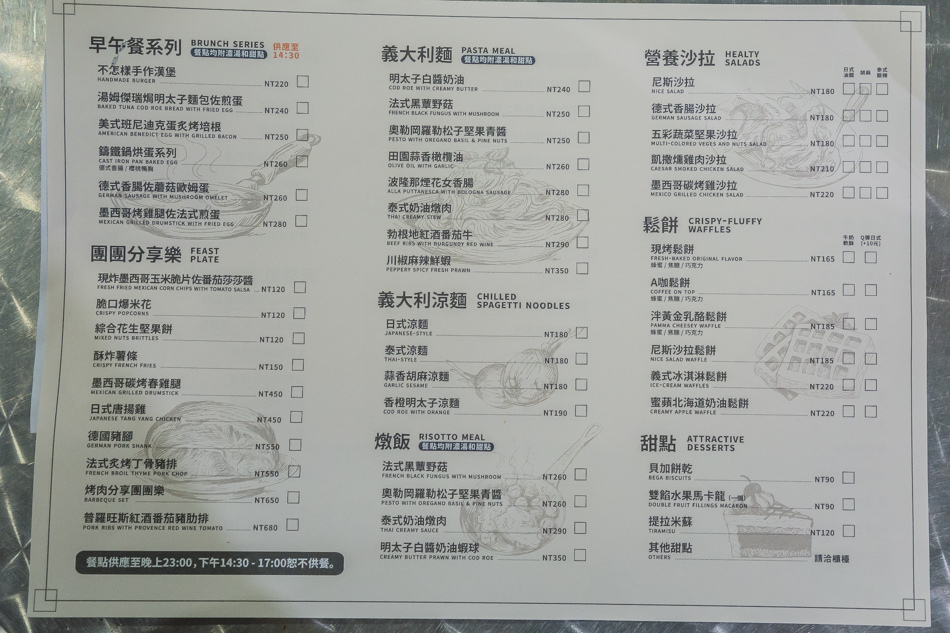 早午餐系列 BRUNCH SERIES 供應至
餐點均附濃湯和甜點 14:30
不怎樣手作漢堡
HANDMADE BURGER NT220
湯姆傑瑞焗明太子麵包佐煎蛋
BAKED TUNA COD ROE BREAD WITH FRIED EGG NT240
美式班尼迪克蛋炙烤培根
AMERICAN BENEDICT EGG WITH GRILLED BACON NT250
鑄鐵鍋烘蛋系列
CAST IRON PAN BAKED EGG NT260
德式香腸 / 櫻桃鴨胸
德式香腸佐蘑菇歐姆蛋
GERMAN SAUSAGE WITH MUSHROOM OMELET NT260
墨西哥烤雞腿佐法式煎蛋
MEXICAN GRILLED DRUMSTICK WITH FRIED EGG NT280
團團分享樂 FEAST
PLATE
現炸墨西哥玉米脆片佐番茄莎莎醬
FRESH FRIED MEXICAN CORN CHIPS WITH TOMATO SALSA NT120
脆口爆米花
CRISPY POPCORNS NT120
綜合花生堅果餅
MIXED NUTS BRITTLES NT120
酥炸薯條
CRISPY FRENCH FRIES NT150
墨西哥碳烤春雞腿
MEXICAN GRILLED DRUMSTICK NT450
日式唐揚雞
JAPANESE TANG YANG CHICKEN NT450
德國豬腳
GERMAN PORK SHANK NT550
法式炙烤丁骨豬排
FRENCH BROIL THYME PORK CHOP NT550
烤肉分享團團樂
BARBEQUE SET NT650
普羅旺斯紅酒番茄豬肋排
PORK RIBS WITH PROVENCE RED WINE TOMATO NT680
餐點供應至晚上23:00,下午14:30 - 17:00恕不供餐。
義大利麵 PASTA MEAL
餐點均附濃湯和甜點
明太子白醬奶油
COD ROE WITH CREAMY BUTTER NT240
法式黑蕈野菇
FRENCH BLACK FUNGUS WITH MUSHROOM NT250
奧勒岡羅勒松子堅果青醬
PESTO WITH OREGANO BASIL & PINE NUTS NT250
田園蒜香橄欖油
OLIVE OIL WITH GARLIC NT260
波隆那煙花女香腸
ALLA PUTTANESCA WITH BOLOGNA SAUSAGE NT280
泰式奶油燉肉
THAI CREAMY STEW NT280
勃根地紅酒番茄牛
BEEF RIBS WITH BURGUNDY RED WINE NT290
川椒麻辣鮮蝦
PEPPERY SPICY FRESH PRAWN NT350
義大利涼麵 CHILLED
SPAGETTI NOODLES
日式涼麵
JAPANESE-STYLE NT180
泰式涼麵
THAI-STYLE NT180
蒜香胡麻涼麵
GARLIC SESAME NT180
香橙明太子涼麵
COD ROE WITH ORANGE NT190
燉飯 RISOTTO MEAL
餐點均附濃湯和甜點
法式黑蕈野菇
FRENCH BLACK FUNGUS WITH MUSHROOM NT260
奧勒岡羅勒松子堅果青醬
PESTO WITH OREGANO BASIL & PINE NUTS NT260
泰式奶油燉肉
THAI CREAMY SAUCE NT290
明太子白醬奶油蝦球
CREAMY BUTTER PRAWN WITH COD ROE NT350
營養沙拉 HEALTY
SALADS
日式 胡麻 泰式
油醋 酸辣
尼斯沙拉
NICE SALAD NT180
德式香腸沙拉
GERMAN SAUSAGE SALAD NT180
五彩蔬菜堅果沙拉
MULTI-COLORED VEGES AND NUTS SALAD NT180
凱撒燻雞肉沙拉
CAESAR SMOKED CHICKEN SALAD NT210
墨西哥碳烤雞沙拉
MEXICO GRILLED CHICKEN SALAD NT220
鬆餅 CRISPY-FLUFFY
WAFFLES
牛奶 Q彈日式
軟綿 (+10元)
現烤鬆餅
FRESH-BAKED ORIGINAL FLAVOR NT165
蜂蜜 / 焦糖 / 巧克力
A咖鬆餅
COFFEE ON TOP NT165
蜂蜜 / 焦糖 / 巧克力
泮黃金乳酪鬆餅
PAMMA CHEESEY WAFFLE NT185
蜂蜜 / 焦糖 / 巧克力
尼斯沙拉鬆餅
NICE SALAD WAFFLE NT185
義式冰淇淋鬆餅
ICE-CREAM WAFFLES NT220
蜜蘋北海道奶油鬆餅
CREAMY APPLE WAFFLE NT220
甜點 ATTRACTIVE
DESSERTS
貝加餅乾
BEGA BISCUITS NT90
雙餡水果馬卡龍 (一個)
DOUBLE FRUIT FILLINGS MACARON NT90
提拉米蘇
TIRAMISU NT120
其他甜點
OTHERS 請洽櫃檯